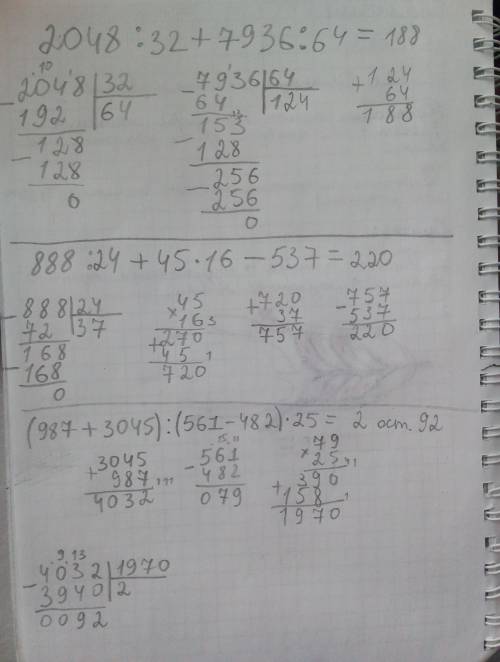 2048 : 32 + 7936 : 64 = 188
10
2048 | 32
192 | 64
128
128
0
7936 | 64
64 | 124
153
128
256
256
0
+124
64
188
888 : 24 + 45 · 16 - 537 = 220
888 | 24
72 | 37
168
168
0
45
×16 3
270
+45 1
720
+720
37
757
-757
537
220
(987 + 3045) : (561 - 482) · 25 = 2 ост. 92
3045
+987
4032
15 11
-561
482
079
79
×25
390
+158 1
1970
9 13
4032 | 1970
-3940 | 2
0092